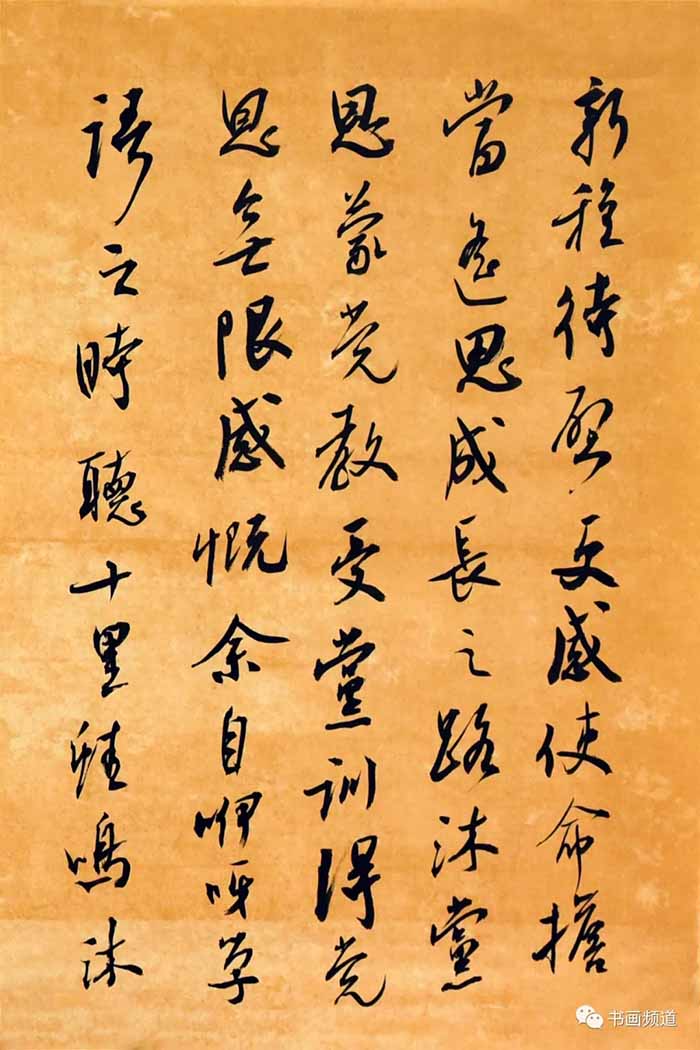 新程待启更感使命擔
當遥思成長之路沐黨
恩蒙党教受黨訓得党
恩無限感慨余自咿呀学
語之時聽十里蛙鳴沐
书画频道